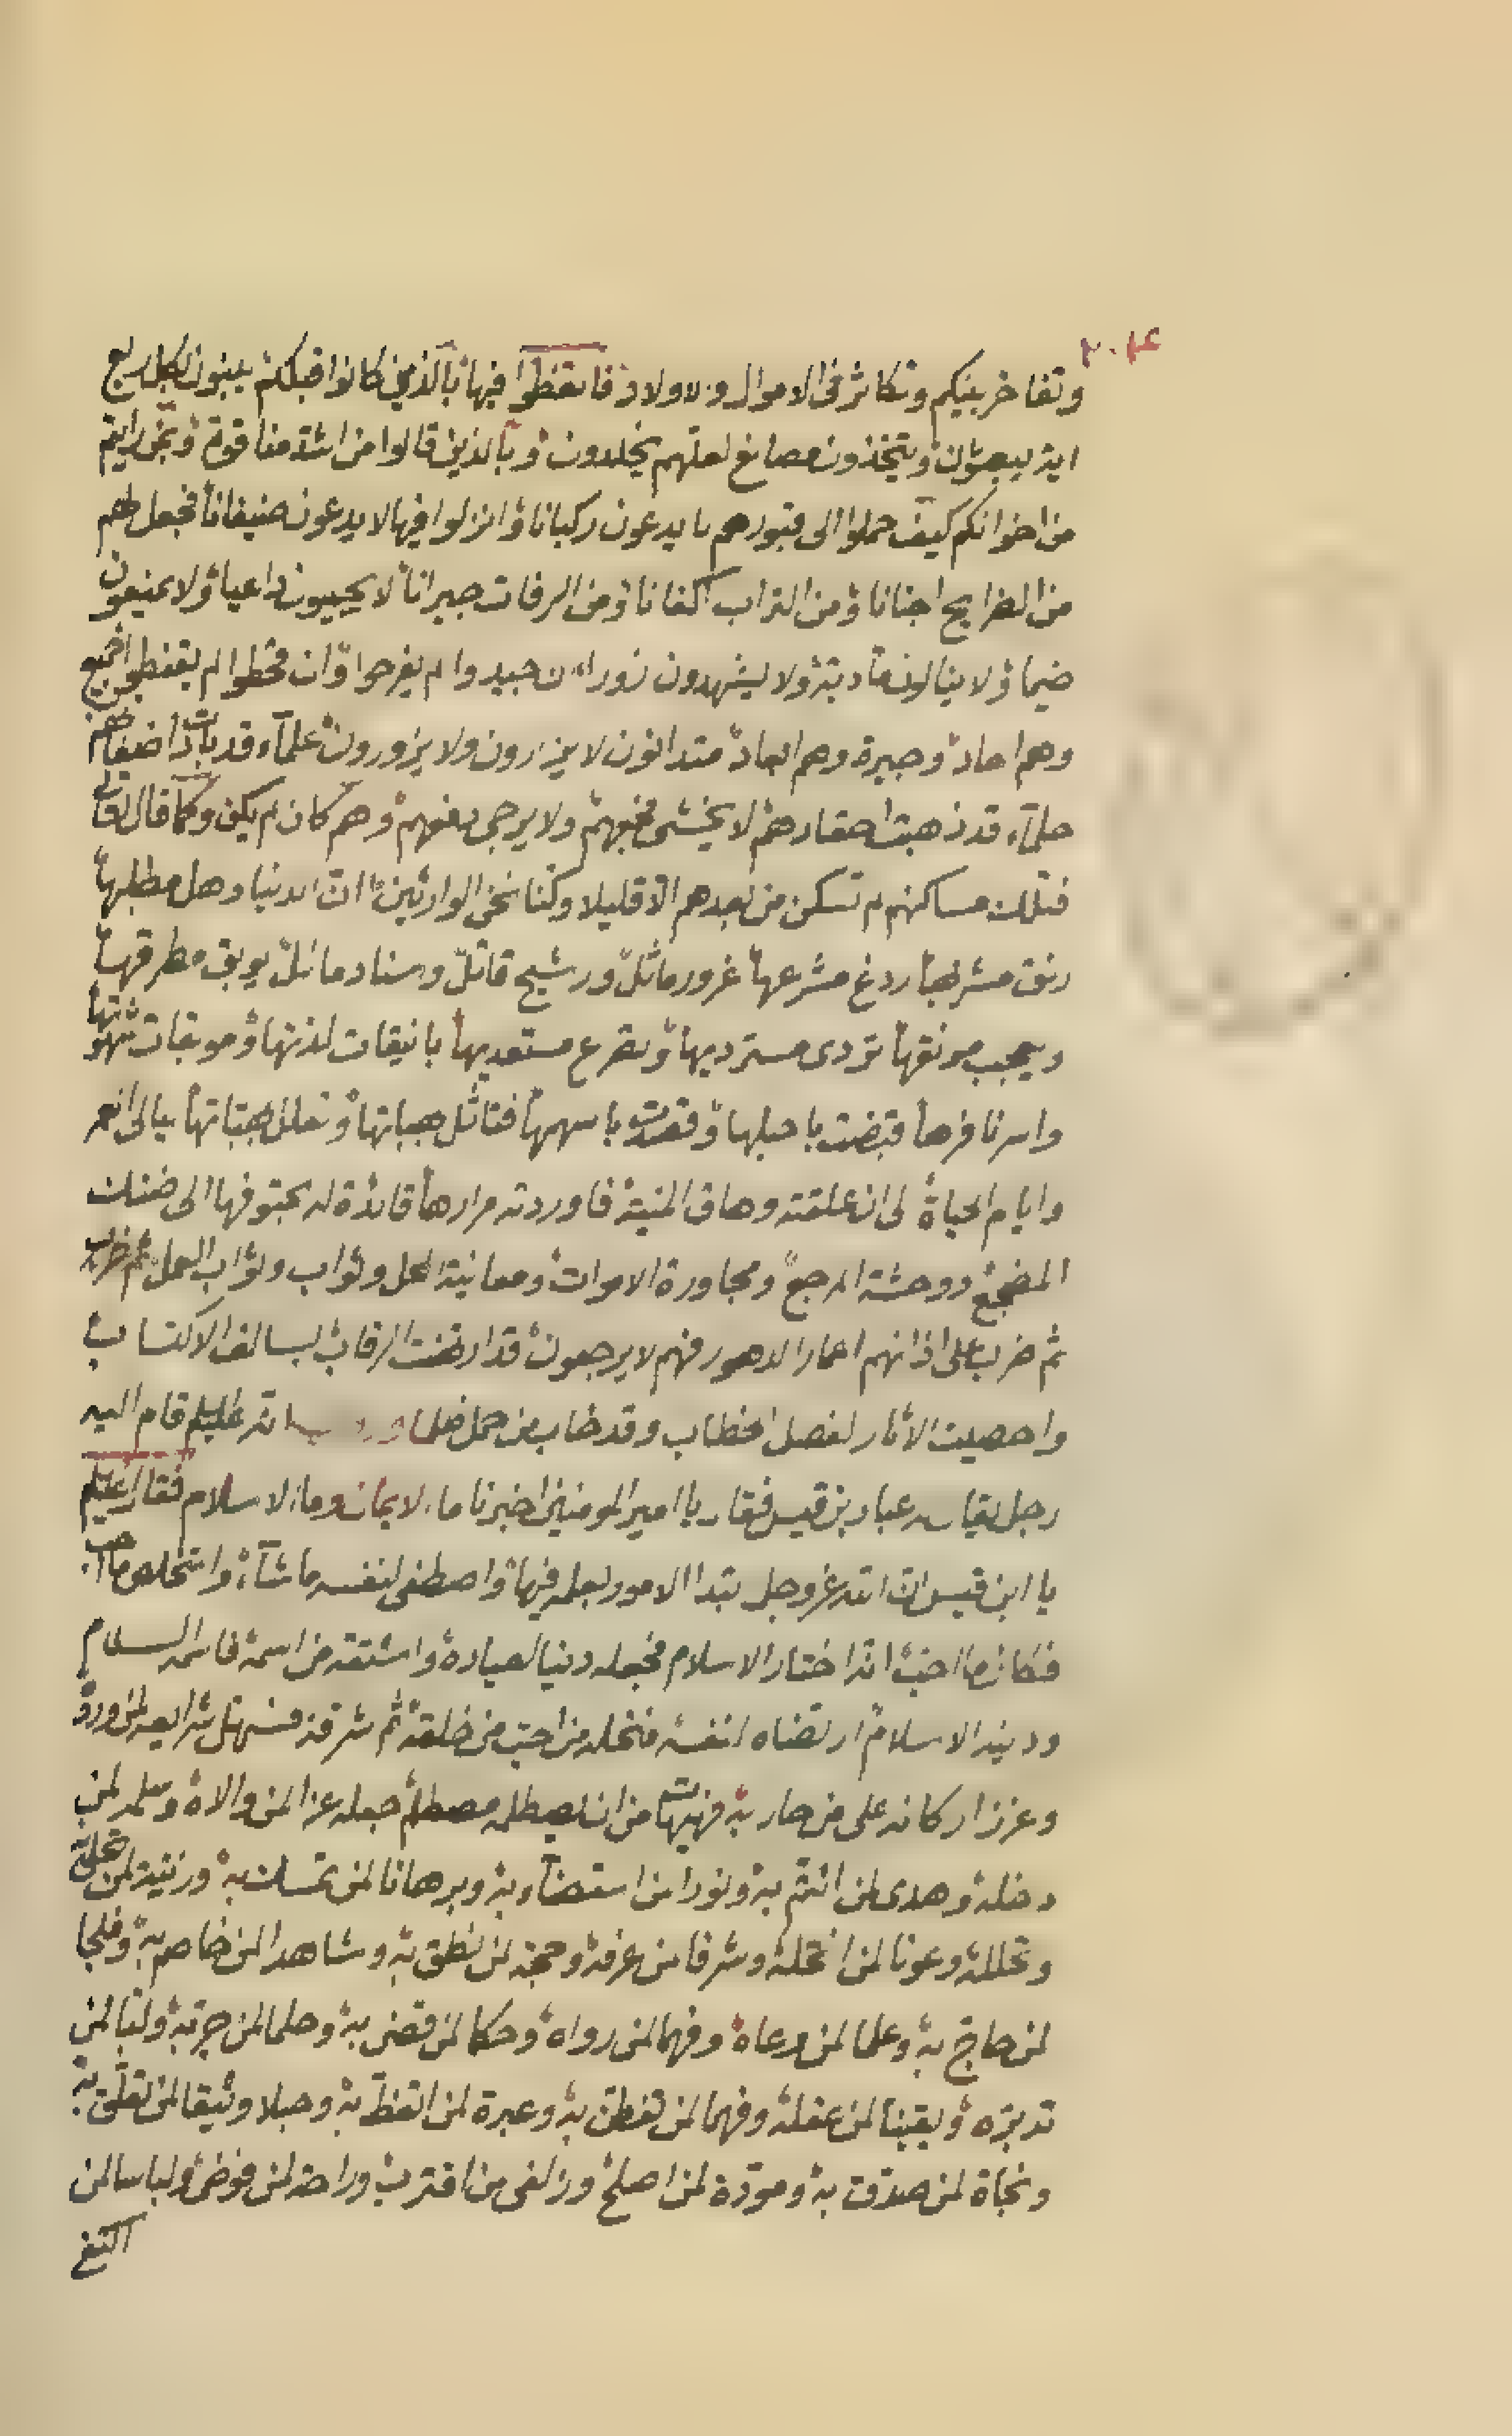 ٢٠٤
وتفاخر بينكم وتكاثر فى الاموال والاولاد فاتعظوا فيها بالذين كانوا قبلكم يبنون بكل ريع
اية يعبثون ويتخذون مصانع لعلهم يخلدون وبالذين قالوا من اشد منا قوة وبمن رايتم
من اخوانكم كيف حملوا الى قبورهم لا يدعون ركبانا وانزلوا فيها لا يدعون ضيفانا فجعل لهم
من الضرايح اجنانا ومن التراب اكفانا ومن الرفات جيرانا لا يجيبون داعيا ولا يمنعون
ضيما ولا ينالون مأدبة ولا يشهدون زورا ان جيدوا لم يفرحوا وان قحطوا لم يقنطوا جميع
وهم احاد وجيرة وهم ابعاد متدانون لا يزارون ولا يزورون علمآء قد بادت اضغانهم
حلمآء قد ذهبت احقادهم لا يخشى فجعهم ولا يرجى دفعهم وهم كان لم يكن وكما قال تعالى
فتلك مساكنهم لم تسكن من بعدهم الا قليلا وكنا نحن الوارثين ان الدنيا وهل مطلبها
رنق مشربها ردغ مشرعها غرور ماثل وشبح قاتل وسناد مائل يوبق مطرقها
ويعجب مونقها تردى مستزديها وتصرع مستعديها بانيقات لذتها وموبقات شهوتها
واسر نافرها قبضت باحبلها وقصدت باسهمها هباتها وتعلل ليالى العمر
وايام الحياة الى ان علقته وهاق المنية فاوردته مرارها قائدة له بحتوفها الى ضنك
المضجع ووحشة المرجع ومجاورة الاموات ومعاينة المحل وثواب العمل ثم ضرب
ثم ضرب على اذانهم اعمار الدهور فهم لا يرجعون قد ارتهنت الرقاب بسالف الاكتساب
واحصيت الاثار لفصل الخطاب وقد خاب من حمل ظلما عليلم قام اليه
رجل يقال له عباد بن قيس فقال يا امير المومنين اخبرنا ما الايمان وما الاسلام فقال عليلم
يا ابن قيس ان الله عز وجل ابتدا الامور بعلمه فيها واصطفى لنفسه ما شآء واستخلص ما احب
فكان مما احب انه اختار الاسلام فجعله دينا لعباده واشتقه من اسمه فاسمه السلام
ودينه الاسلام ارتضاه لنفسه فنحله من احب من خلقه ثم شرفه فسهل شرايعه لمن ورده
وعزز اركانه على من حاربه فهيهات من ان يصطلمه مصطلم جعله عزا لمن والاه وسلما لمن
دخله وهدى لمن ائتم به ونورا لمن استضآء به وبرهانا لمن تمسك به وزينة لمن تحلى
وتحلله وعونا لمن انتحله وشرفا لمن عرفه وحجة لمن نطق به وشاهدا لمن خاصم به وفلجا
لمن حاج به وعلما لمن وعاه وفهما لمن رواه وحكما لمن قضى به وحلما لمن جربه ولبا لمن
تدبره ويقينا لمن عقله وفهما لمن تفطن به وعبرة لمن اتعظ به وحبلا وثيقا لمن تعلق به
ونجاة لمن صدق به ومودة لمن اصلح وزلفى لمن اقترب وراحة لمن فوض ولباسا لمن
اكتفى